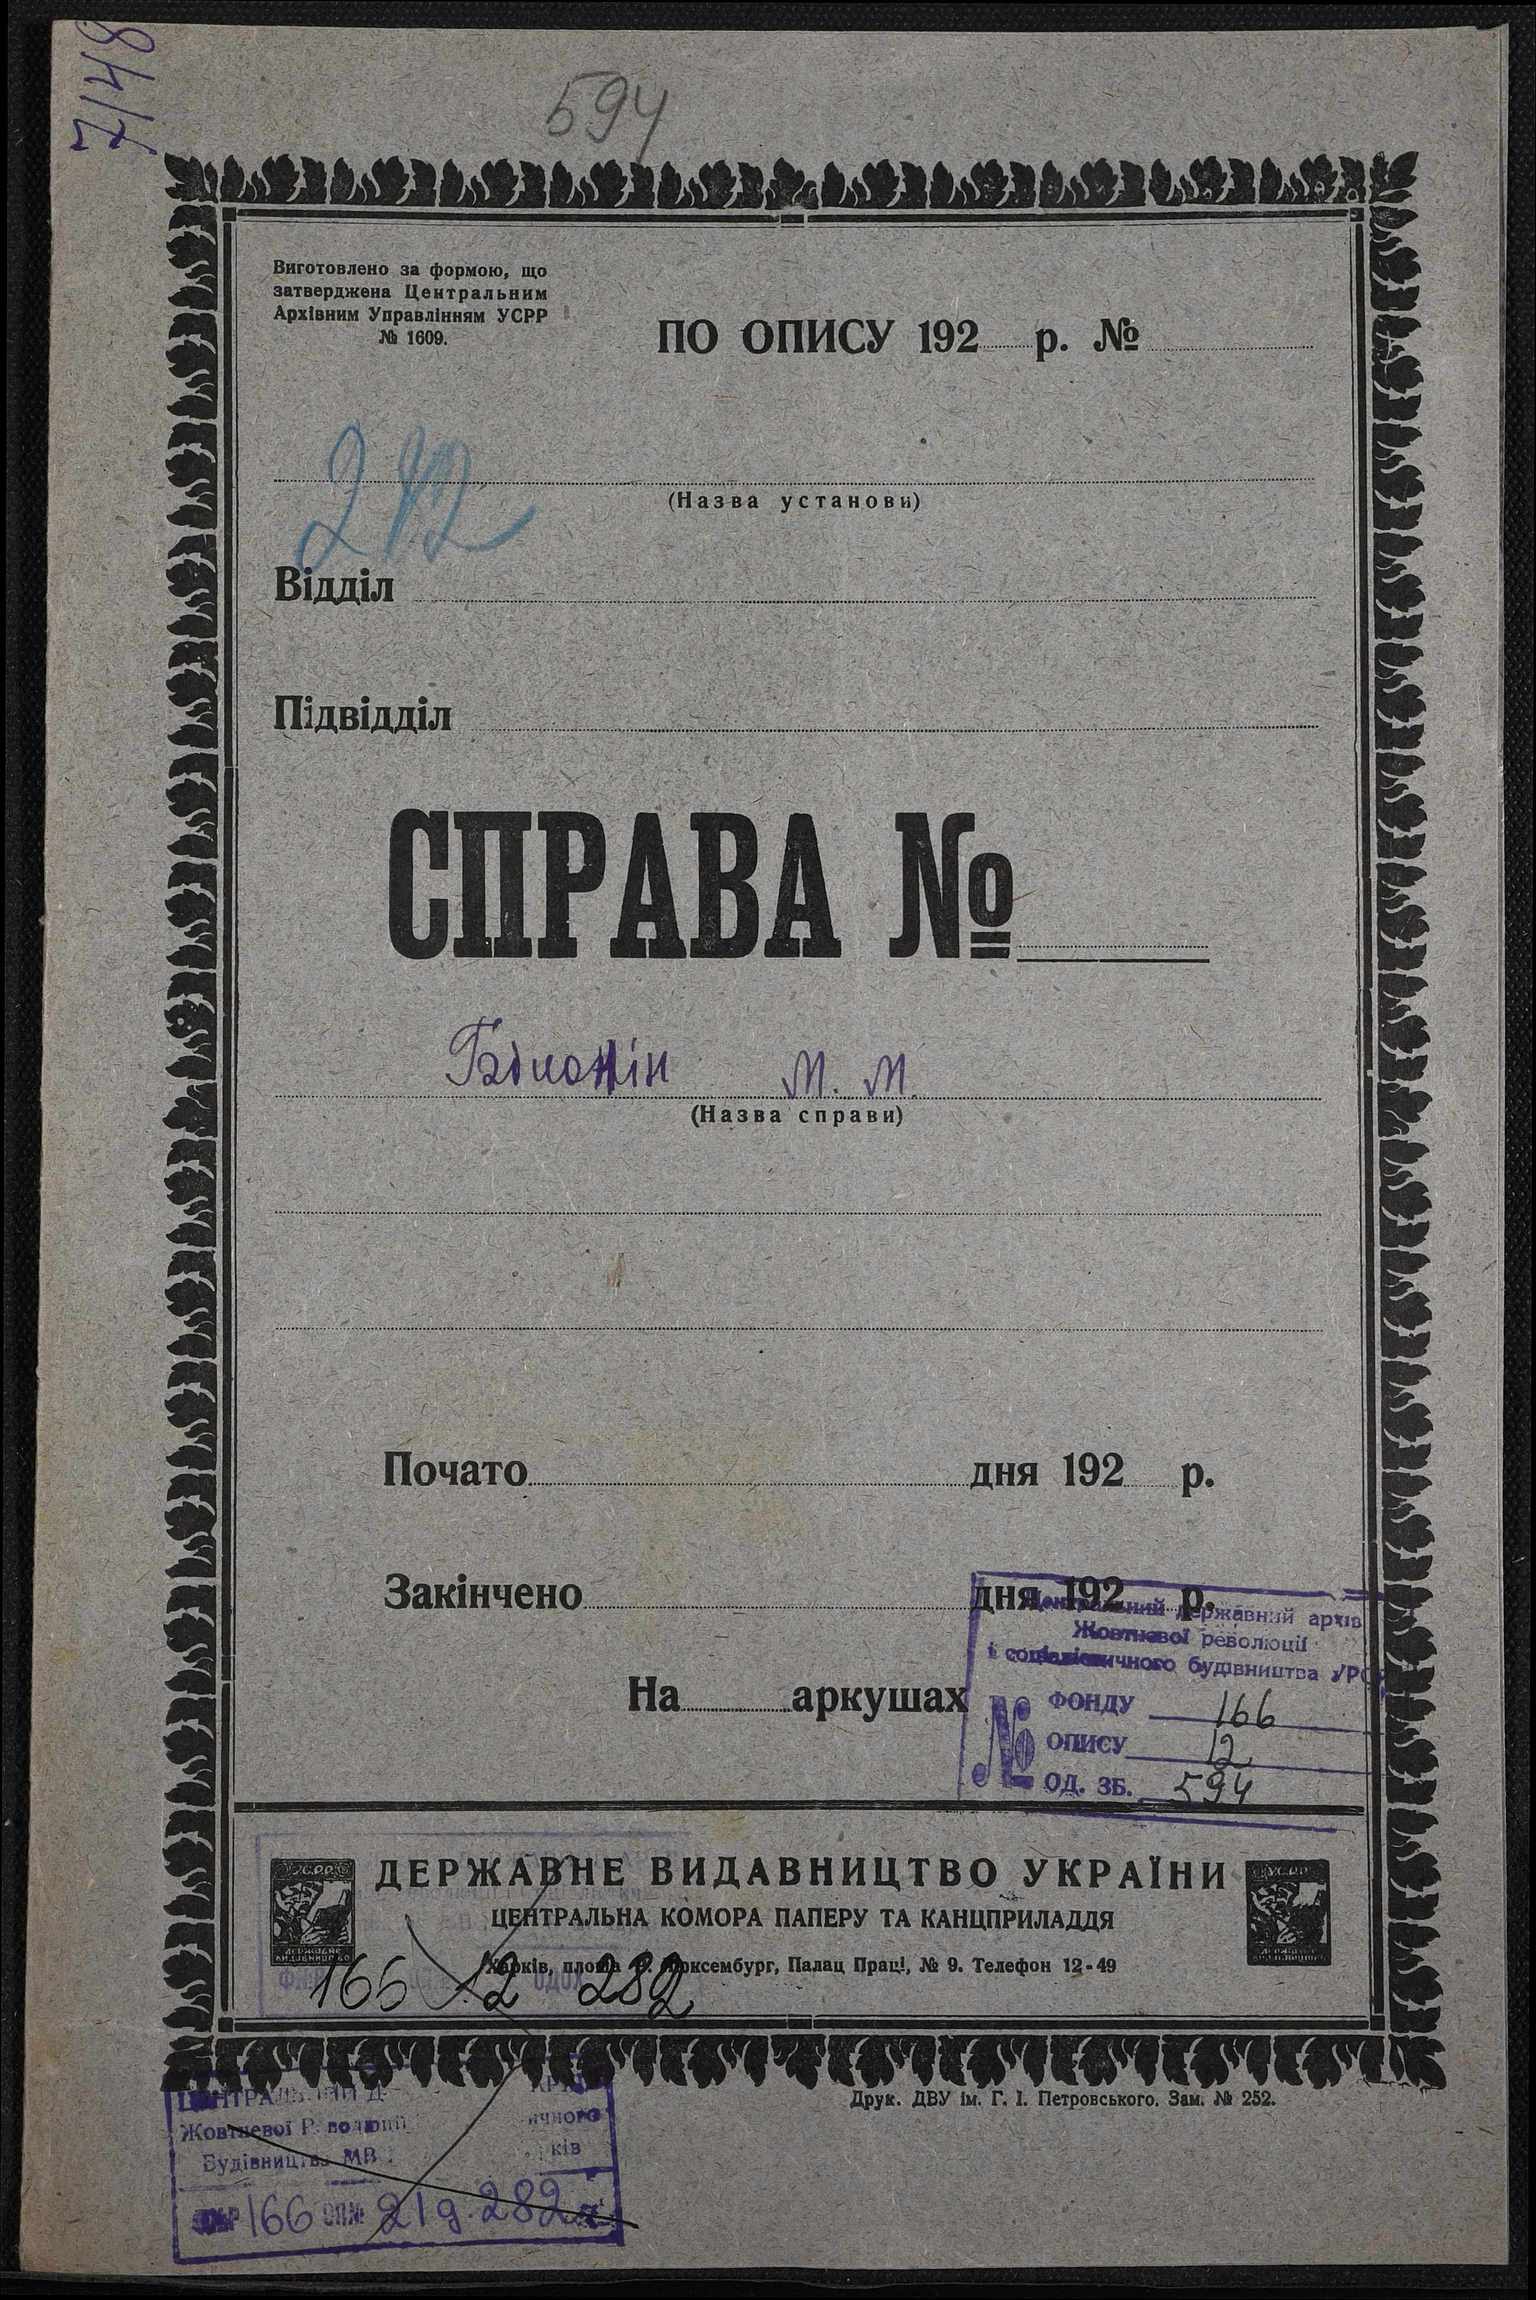 7148
594
Виготовлено за формою, що
затверджена Центральним
Архівним Управлінням УСРР
№ 1609.
ПО ОПИСУ 192 р. №
(Назва установи)
Відділ
Підвідділ
СПРАВА №
М. М.
(Назва справи)
Почато дня 192 р.
Закінчено дня 192 р.
На аркушах
Центральний державний архів
Жовтневої революції
і соціалістичного будівництва УРСР
№ ФОНДУ 166
ОПИСУ 12
ОД. ЗБ. 594
У.С.Р.Р.
ДЕРЖАВНЕ ВИДАВНИЦТВО УКРАЇНИ
ЦЕНТРАЛЬНА КОМОРА ПАПЕРУ ТА КАНЦПРИЛАДДЯ
Харків, площа Р. Люксембург, Палац Праці, № 9. Телефон 12-49
166 12 282
Друк. ДВУ ім. Г. І. Петровського. Зам. № 252.
ЦЕНТРАЛЬНИЙ
Жовтневої Революції
Будівництва
166 ОП№ 2 1 д. 282